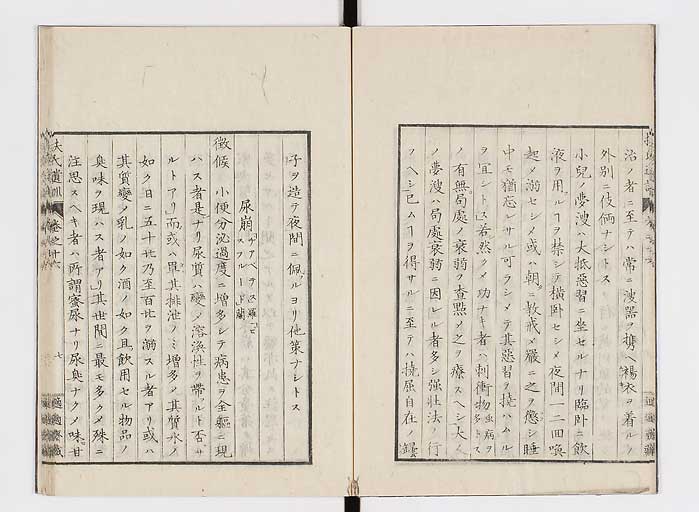 治ノ者ニ至テハ常ニ溲器ヲ携ヘ褐衣ヲ着ルノ
外別ニ伎倆ナシトス
小兒ノ夢溲ハ大抵惡習ニ坐セルナリ臨臥ニ飲
液ヲ用ルヿヲ禁シテ橫臥セシメ夜間一二回喚
起メ溺セシメ或ハ朝ニ敎戒メ嚴ニ之ヲ懲シ睡
中モ猶忘レサル可ラシメテ其惡習ヲ挠ハムル
ヲ宜シトス若然メ功ナキ者ハ刺衝物
ノ有無局處ノ衰弱ヲ查點メ之ヲ療スヘシ大人
ノ夢溲ハ局處衰弱ニ因レル者多シ强壯法ヲ行
フヘシ已ムヿヲ得サルニ至テハ挠屈自在ノ
子ヲ造テ夜間ニ佩ルヨリ他策ナシトス
尿崩
徵候 小便分泌過度ニ增多シテ病患ヲ全軀ニ現
ハス者是ナリ尿質ハ變メ溶滌性ヲ帶ルト否サ
ルトアリ而或ハ單其排泄ノミ增多メ其質水ノ
如ク日ニ五十比乃至百比ヲ溺スル者アリ或ハ
其質變メ乳ノ如ク酒ノ如ク且飲用セル物品ノ
臭味ヲ現ハス者アリ其世間ニ最モ多クメ殊ニ
注思スヘキ者ハ所謂蜜尿ナリ尿臭ナクメ味甘
扶氏遺訓 卷之十六 七